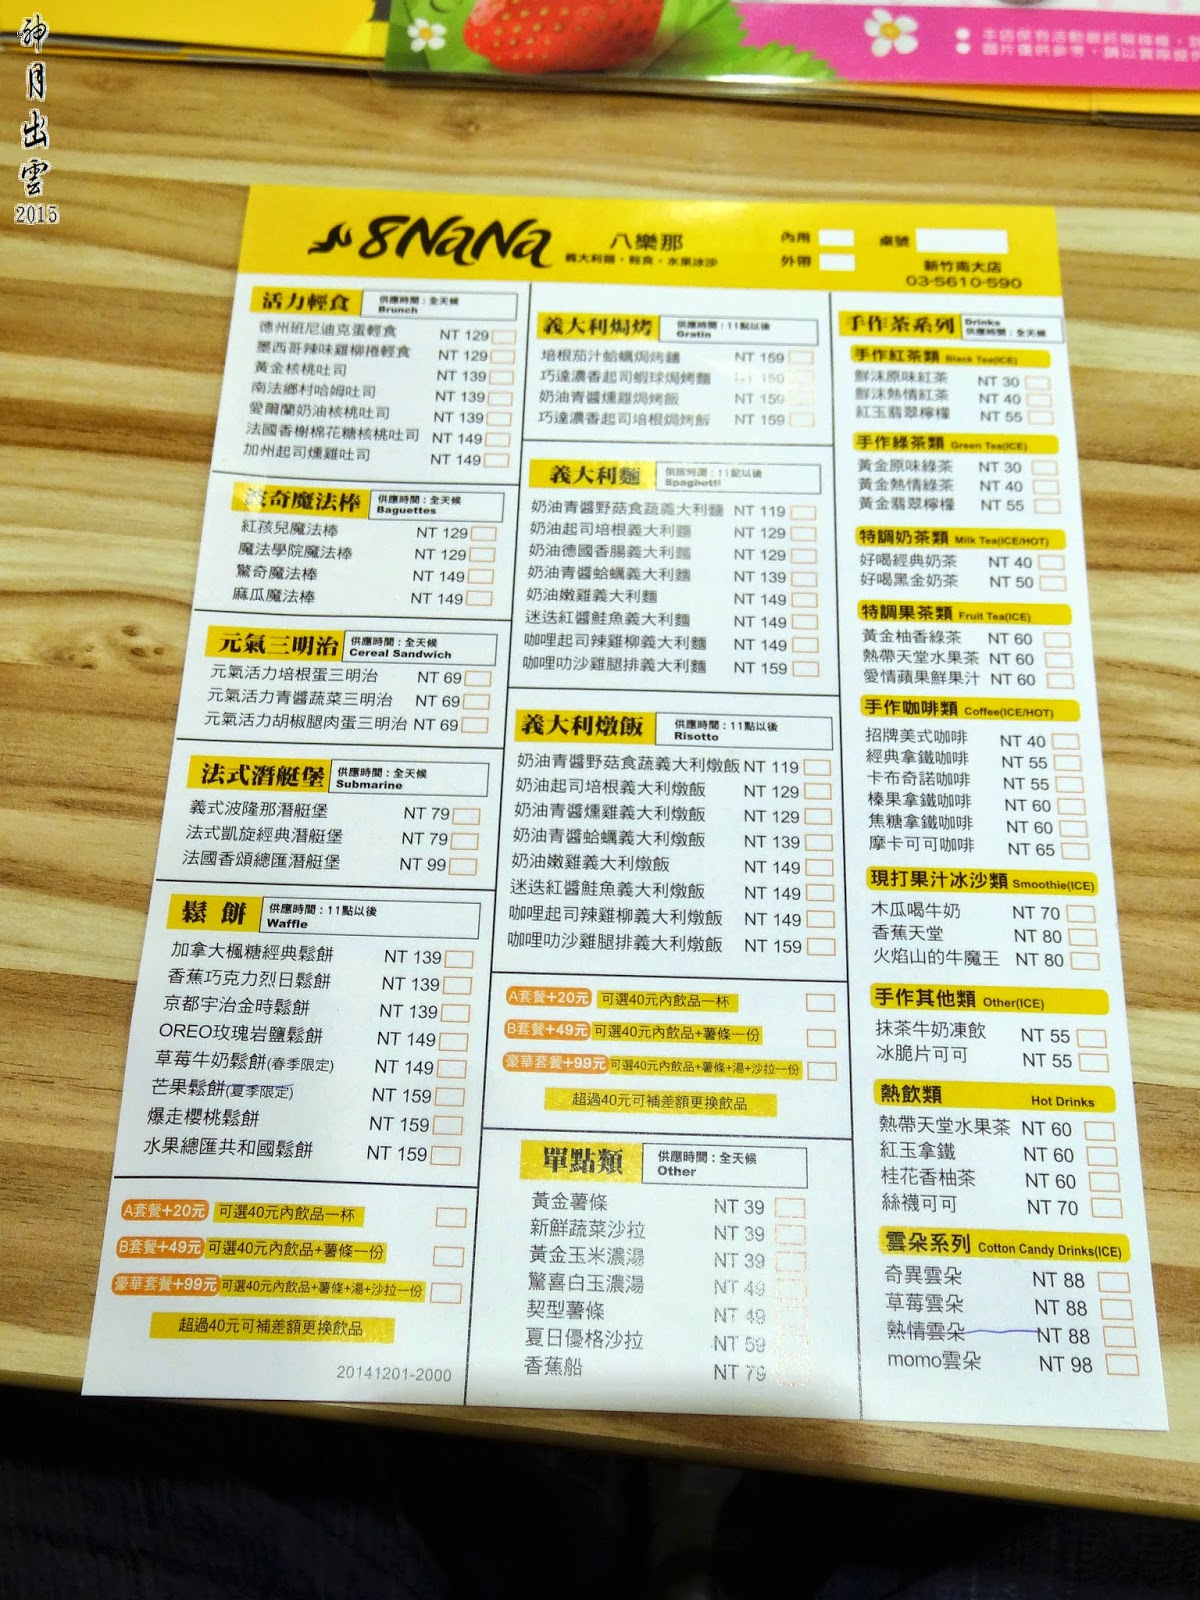 神月出雲
2015
8NaNa
八樂那
義大利麵・輕食・水果冰沙
內用
外帶
桌號
新竹南大店
03-5610-590
活力輕食 供應時間：全天候 Brunch
德州班尼迪克蛋輕食 NT 129
墨西哥辣味雞柳捲輕食 NT 129
黃金核桃吐司 NT 139
南法鄉村哈姆吐司 NT 139
愛爾蘭奶油核桃吐司 NT 139
法國香榭棉花糖核桃吐司 NT 149
加州起司燻雞吐司 NT 149
奇魔法棒 供應時間：全天候 Baguettes
紅孩兒魔法棒 NT 129
魔法學院魔法棒 NT 129
驚奇魔法棒 NT 149
麻瓜魔法棒 NT 149
元氣三明治 供應時間：全天候 Cereal Sandwich
元氣活力培根蛋三明治 NT 69
元氣活力青醬蔬菜三明治 NT 69
元氣活力胡椒腿肉蛋三明治 NT 69
法式潛艇堡 供應時間：全天候 Submarine
義式波隆那潛艇堡 NT 79
法式凱旋經典潛艇堡 NT 79
法國香頌總匯潛艇堡 NT 99
鬆餅 供應時間：11點以後 Waffle
加拿大楓糖經典鬆餅 NT 139
香蕉巧克力烈日鬆餅 NT 139
京都宇治金時鬆餅 NT 139
OREO玫瑰岩鹽鬆餅 NT 149
草莓牛奶鬆餅(春季限定) NT 149
芒果鬆餅(夏季限定) NT 159
爆走櫻桃鬆餅 NT 159
水果總匯共和國鬆餅 NT 159
A套餐+20元 可選40元內飲品一杯
B套餐+49元 可選40元內飲品+薯條一份
豪華套餐+99元 可選40元內飲品+薯條+湯+沙拉一份
超過40元可補差額更換飲品
20141201-2000
義大利焗烤 供應時間：11點以後 Gratin
培根茄汁蛤蠣焗烤麵 NT 159
巧達濃香起司蝦球焗烤麵
奶油青醬燻雞焗烤飯 NT 159
巧達濃香起司培根焗烤飯 NT 159
義大利麵 供應時間：11點以後 Spaghetti
奶油青醬野菇食蔬義大利麵 NT 119
奶油起司培根義大利麵 NT 129
奶油德國香腸義大利麵 NT 129
奶油青醬蛤蠣義大利麵 NT 139
奶油嫩雞義大利麵 NT 149
迷迭紅醬鮭魚義大利麵 NT 149
咖哩起司辣雞柳義大利麵 NT 149
咖哩叻沙雞腿排義大利麵 NT 159
義大利燉飯 供應時間：11點以後 Risotto
奶油青醬野菇食蔬義大利燉飯 NT 119
奶油起司培根義大利燉飯 NT 129
奶油青醬燻雞義大利燉飯 NT 129
奶油青醬蛤蠣義大利燉飯 NT 139
奶油嫩雞義大利燉飯 NT 149
迷迭紅醬鮭魚義大利燉飯 NT 149
咖哩起司辣雞柳義大利燉飯 NT 149
咖哩叻沙雞腿排義大利燉飯 NT 159
A套餐+20元 可選40元內飲品一杯
B套餐+49元 可選40元內飲品+薯條一份
豪華套餐+99元 可選40元內飲品+薯條+湯+沙拉一份
超過40元可補差額更換飲品
單點類 供應時間：全天候 Other
黃金薯條 NT 39
新鮮蔬菜沙拉 NT 39
黃金玉米濃湯 NT 39
驚喜白玉濃湯 NT 49
契型薯條 NT 49
夏日優格沙拉 NT 59
香蕉船 NT 79
手作茶系列 Drinks 供應時間：全天候
手作紅茶類 Black Tea(ICE)
鮮沫原味紅茶 NT 30
鮮沫熱情紅茶 NT 40
紅玉翡翠檸檬 NT 55
手作綠茶類 Green Tea(ICE)
黃金原味綠茶 NT 30
黃金熱情綠茶 NT 40
黃金翡翠檸檬 NT 55
特調奶茶類 Milk Tea(ICE/HOT)
好喝經典奶茶 NT 40
好喝黑金奶茶 NT 50
特調果茶類 Fruit Tea(ICE)
黃金柚香綠茶 NT 60
熱帶天堂水果茶 NT 60
愛情蘋果鮮果汁 NT 60
手作咖啡類 Coffee(ICE/HOT)
招牌美式咖啡 NT 40
經典拿鐵咖啡 NT 55
卡布奇諾咖啡 NT 55
榛果拿鐵咖啡 NT 60
焦糖拿鐵咖啡 NT 60
摩卡可可咖啡 NT 65
現打果汁冰沙類 Smoothie(ICE)
木瓜喝牛奶 NT 70
香蕉天堂 NT 80
火焰山的牛魔王 NT 80
手作其他類 Other(ICE)
抹茶牛奶凍飲 NT 55
冰脆片可可 NT 55
熱飲類 Hot Drinks
熱帶天堂水果茶 NT 60
紅玉拿鐵 NT 60
桂花香柚茶 NT 60
絲襪可可 NT 70
雲朵系列 Cotton Candy Drinks(ICE)
奇異雲朵 NT 88
草莓雲朵 NT 88
熱情雲朵 NT 88
momo雲朵 NT 98